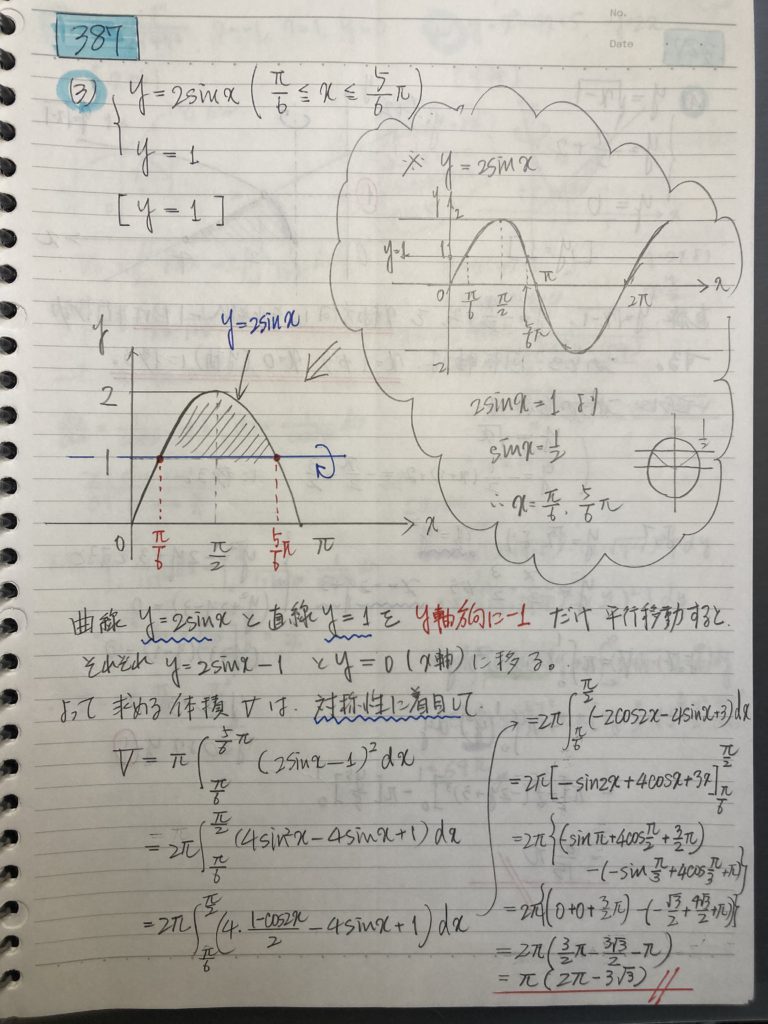 No.
Date
387
(3) { y = 2sinx ( π/6 ≦ x ≦ 5/6 π )
y = 1
[ y = 1 ]
※ y = 2sinx
y
2
y=1
1
0
π/6
π/2
5/6π
π
2π
x
-2
2sinx = 1 より
sinx = 1/2
1/2
∴ x = π/6, 5/6 π
y
y=2sinx
2
1
0
π/6
π/2
5/6π
π
x
曲線 y=2sinx と直線 y=1 を y軸方向に-1 だけ 平行移動すると.
それぞれ y=2sinx-1 と y=0 (x軸) に移る。
よって 求める体積 V は. 対称性に着目して.
V = π∫_{π/6}^{5/6 π} (2sinx-1)² dx
= 2π∫_{π/6}^{π/2} (4sin²x-4sinx+1) dx
= 2π∫_{π/6}^{π/2} (4・(1-cos2x)/2 - 4sinx+1) dx
= 2π∫_{π/6}^{π/2} (-2cos2x-4sinx+3) dx
= 2π[-sin2x+4cosx+3x]_{π/6}^{π/2}
= 2π{(sinπ+4cos π/2 + 3/2 π)
-(-sin π/3 + 4cos π/3 + π)}
= 2π{(0+0+ 3/2 π) - (-√3/2 + 4√3/2 + π)}
= 2π( 3/2 π - 3√3/2 - π)
= π(2π-3√3)